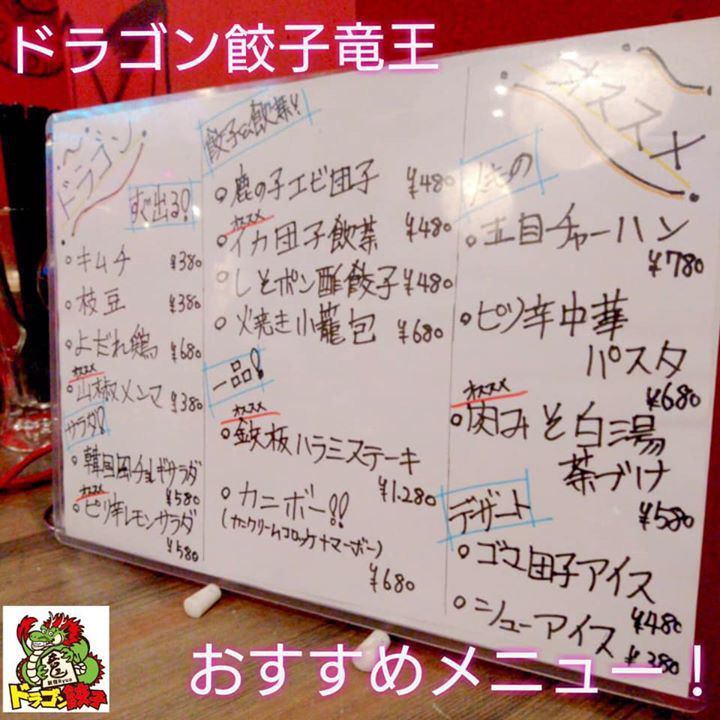 ドラゴン餃子竜王
ドラゴン
オススメ
すぐ出る!
キムチ ¥380
枝豆 ¥380
よだれ鶏 ¥680
オススメ
山椒メンマ ¥380
サラダ!
韓国風チョレギサラダ
¥580
オススメ
ピリ辛レモンサラダ
¥580
餃子と飲茶!
鹿の子エビ団子 ¥480
オススメ
イカ団子飲茶 ¥480
しそポン酢餃子 ¥480
火焼き小籠包 ¥680
一品!
オススメ
鉄板ハラミステーキ
¥1.280
カニボー!!
(カニクリームコロッケナマーボー)
¥680
〆もの
五目チャーハン
¥780
ピリ辛中華
パスタ
¥680
オススメ
肉みそ白湯
茶づけ
¥580
デザート
ゴマ団子アイス
¥480
シューアイス
¥380
おすすめメニュー!
ドラゴン餃子